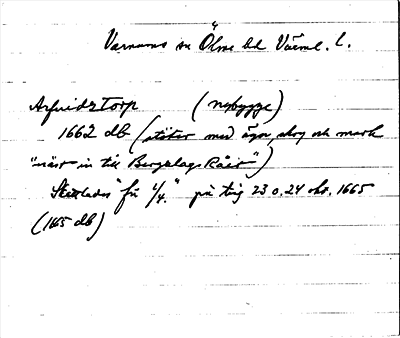 Varnums sn Ölme hd Värml. l.
Arfvidstorp (nybygge)
1662 db (stöter med ägor, skog och mark
"näst in till Bergslags Råår")
Skattlades "för 1/4." på ting 23 o. 24 okt. 1665
(1665 db)